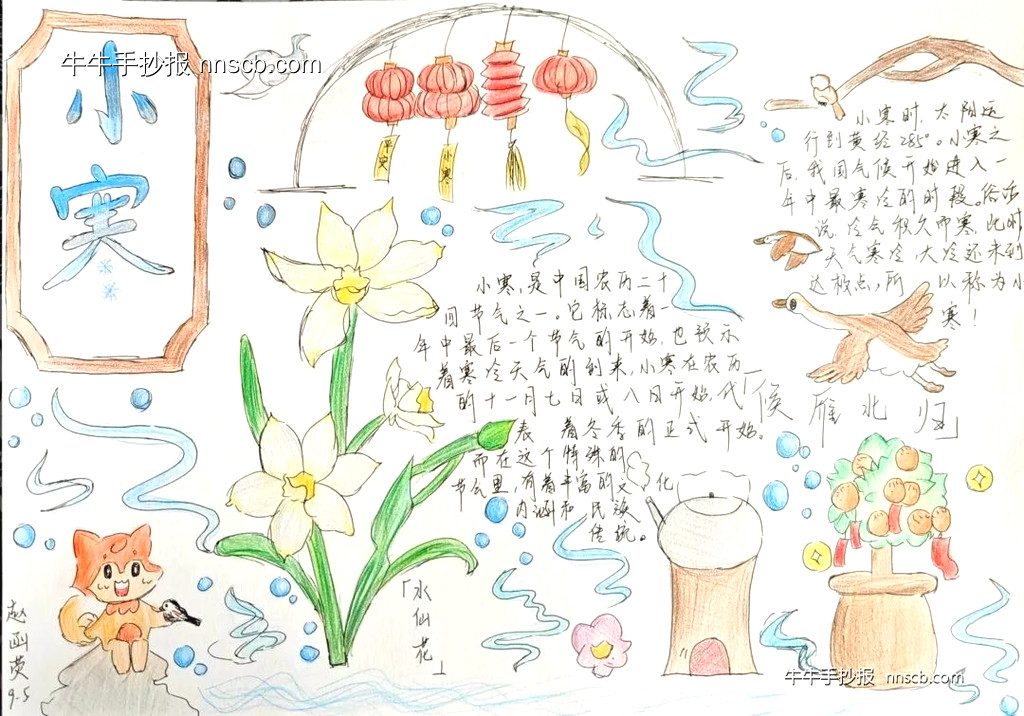 牛牛手抄报 nnscb.com
小
寒
平安
小寒
小寒时，太阳运
行到黄经285°。小寒之
后，我国气候开始进入一
年中最寒冷的时段。俗话
说，冷气积久而寒，此时
天气寒冷，大冷还未到
达极点，所以称为小
寒！
小寒，是中国农历二十
四节气之一。它标志着一
年中最后一个节气的开始，也预示
着寒冷天气的到来，小寒在农历
的十一月七日或八日开始，代
表着冬季的正式开始。
而在这个特殊的
节气里，有着丰富的文化
内涵和民族
传统。
「候雁北归」
「水仙花」
赵函
9.5
牛牛手抄报 nnscb.com